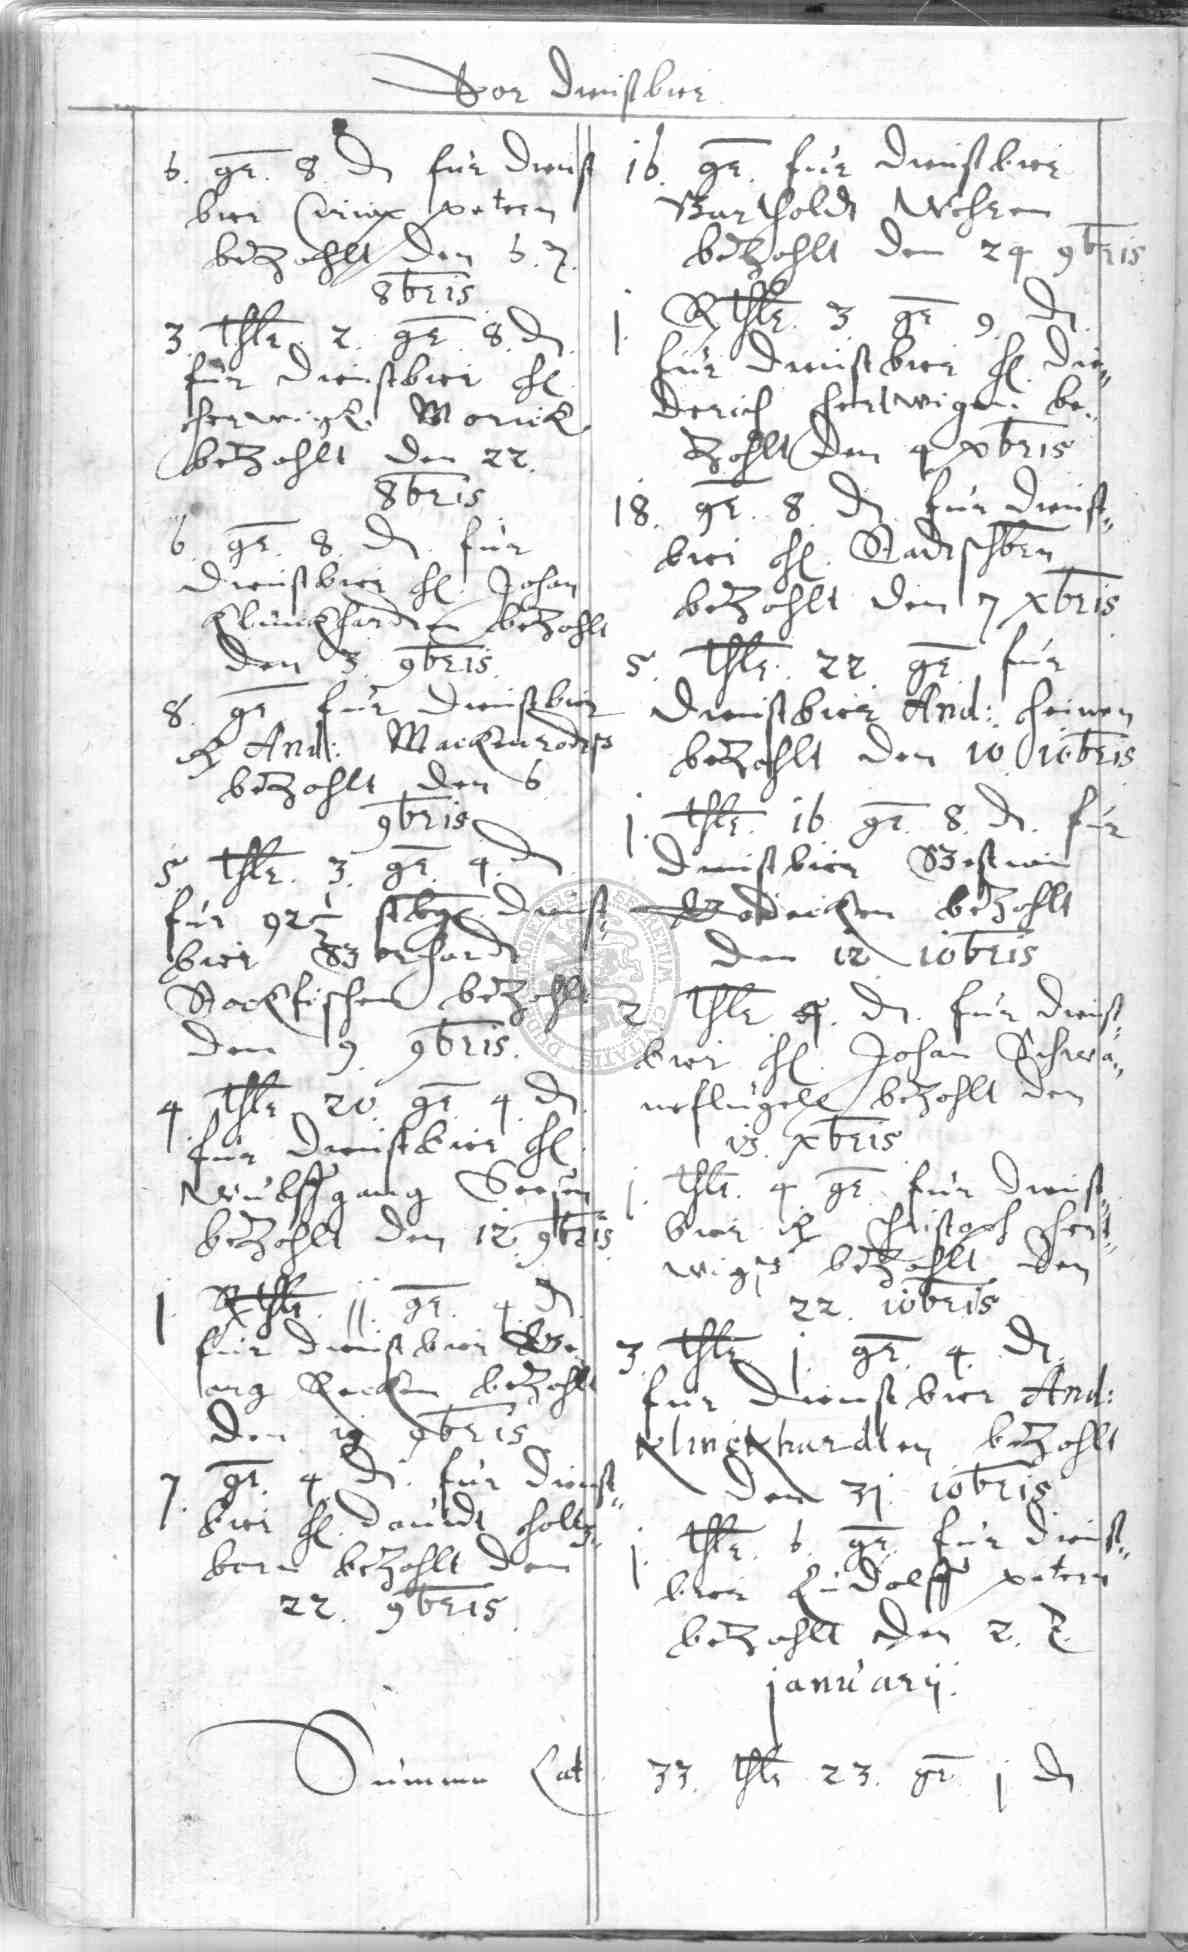 Vor Dienstbier
6. gr. 8. d für Dienst
bier Curiax petern
betzahlt den 6. 7.
8bris
3. thlr. 2. gr. 8. d.
für Dienstbier H.
Herwigk Monick
betzahlt den 22.
8bris
6 gr. 8. d. für
Dienstbier H. Johan
Klinckhardten betzahlt
den 3. 9bris.
8. gr für Dienstbier
And: Mackenrodts
betzahlt den 6
9bris
5 thlr. 3. gr. 4. d
für 92½ stbg. Dienst
bier Berhardt
Stockfischen betzahlt
den 9. 9bris.
4 thlr 20 gr. 4. d
für Dienstbier H.
Wulffgang
betzahlt den 12. 9bris
1. Rthlr. 11. gr. 4. d
für Dienstbier Ge-
org Recken betzahlt
den 19 9bris
7. gr. 4. d. für Dienst-
bier H. Dauidt Holtz-
born betzahlt den
22. 9bris.
16. gr. für Dienstbier
Bartholdt Wehren
betzahlt den 24 9bris
1. Rthlr. 3 gr 9. d.
für Dienstbier H. Die-
derich Hertwigen be-
zahlt den 4 xbris
18. gr. 8. d für Dienst-
bier H.
betzahlt den 7 xbris
5. thlr. 22. gr. für
Dienstbier And: Heinen
betzahlt den 10 10bris
1. thlr. 16 gr. 8. d. für
Dienstbier Bestian
Gödecken betzahlt
den 12 10bris
2 thlr 4. d. für Dienst-
bier H. Johan Schwa-
neflügell bezahlt den
13. xbris
1. thlr. 4 gr. für Dienst-
bier Christoph Hert-
wigs betzahlt den
22. 10bris
3. thlr 1. gr. 4. d.
für Dienstbier And:
Klinckhardten betzahlt
den 31. 10bris
1. thlr. 6. gr. für Dienst-
bier Rudolff petern
betzahlt den 2.
januarij.
Summa Lat. 33. thlr 23. gr 1 d